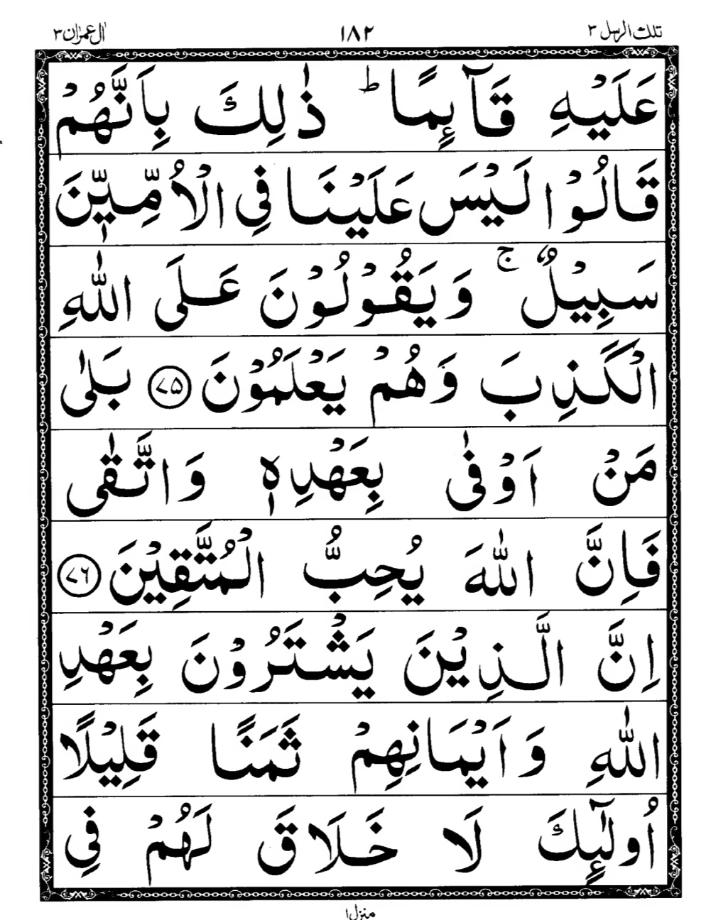 تلك الرسل ٣ ١٨٢ اٰل عمرٰن ٣
عَلَيْهِ قَآئِمًا ؕ ذٰلِكَ بِاَنَّهُمْ
قَالُوْا لَيْسَ عَلَيْنَا فِی الْاُمِّيّٖنَ
سَبِيْلٌ ۚ وَ يَقُوْلُوْنَ عَلَی اللّٰهِ
الْكَذِبَ وَ هُمْ يَعْلَمُوْنَ ﴿۷۵﴾ بَلٰی
مَنْ اَوْفٰی بِعَهْدِهٖ وَ اتَّقٰی
فَاِنَّ اللّٰهَ يُحِبُّ الْمُتَّقِيْنَ ﴿۷۶﴾
اِنَّ الَّذِيْنَ يَشْتَرُوْنَ بِعَهْدِ
اللّٰهِ وَ اَيْمَانِهِمْ ثَمَنًا قَلِيْلًا
اُولٰٓئِكَ لَا خَلَاقَ لَهُمْ فِی
منزل ۱